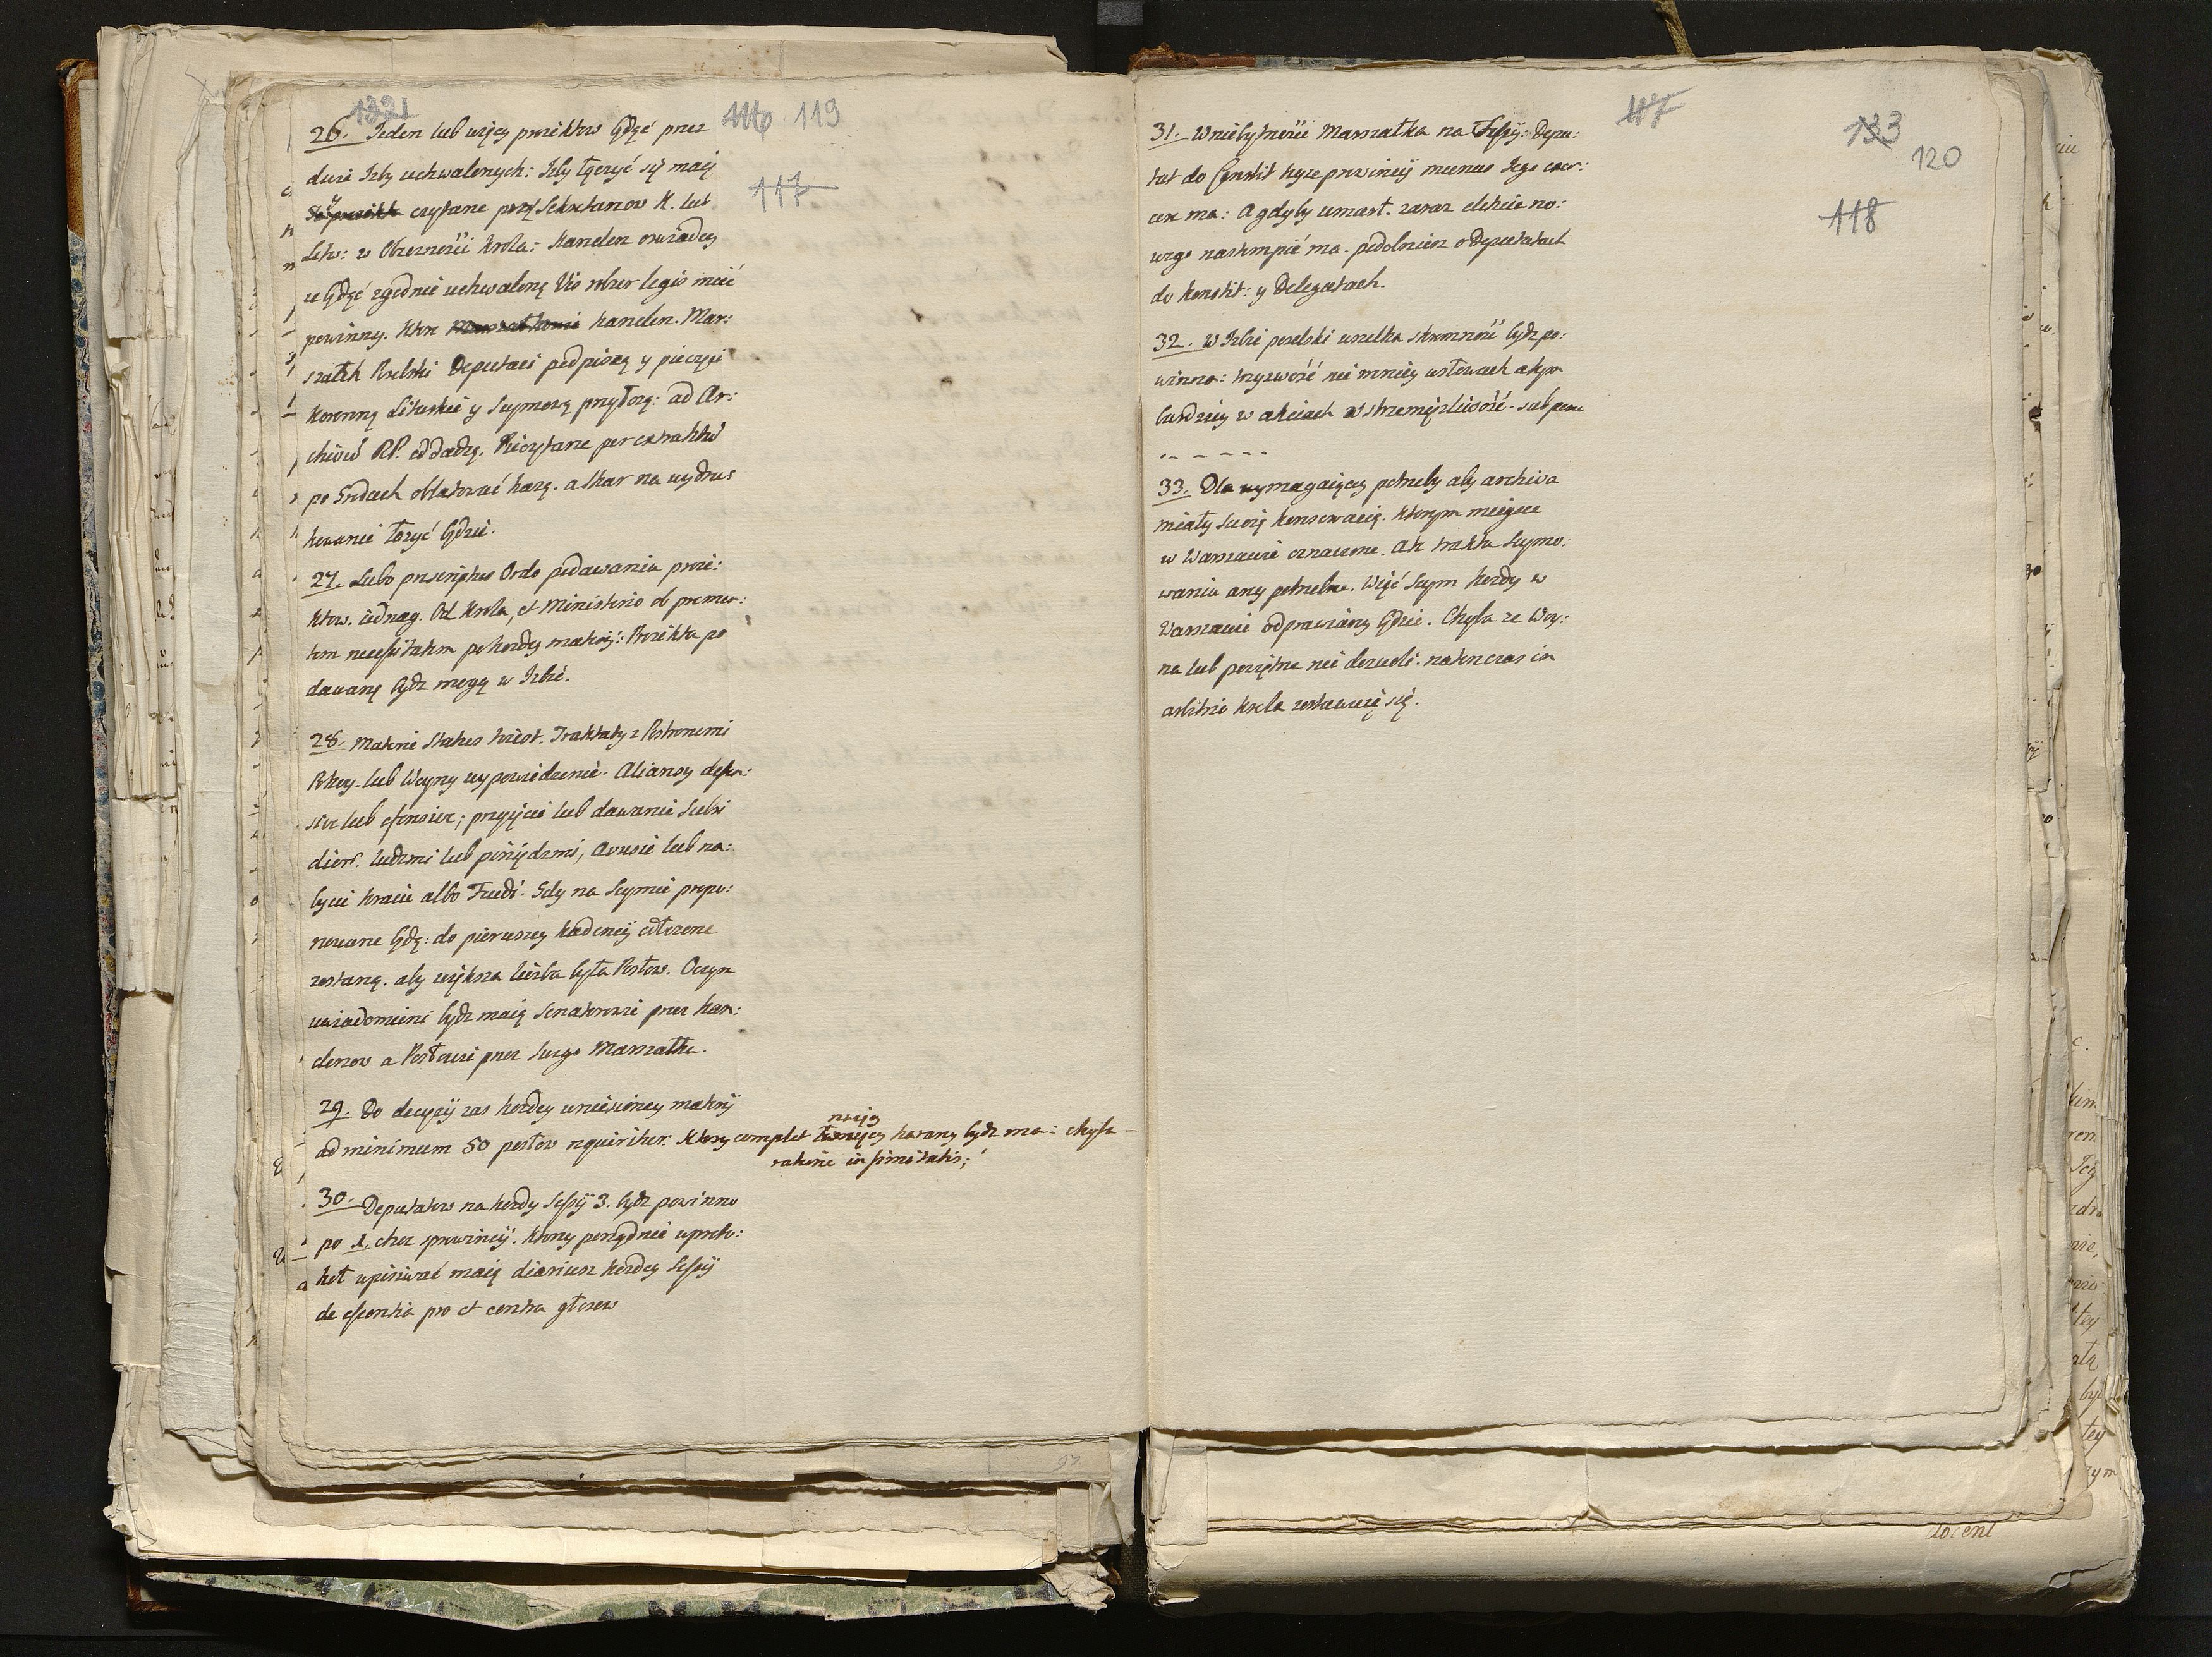 1321
116 119
117
26. Jeden lub więcy proiektow bądź przez
dwie Izby uchwalonych: Izby łączyć się maią
y czytane przez Sekretarzow K. lub
Litw: w Obecności Krola: Kanclerz oswiadczy
ze bądź zgodnie uchwalone Vis robur legis mieć
powinny. Ktore Kanclerz. Mar:
szałek Poselski Deputaci podpiszą y pieczęci
Koronną Litewskie y Seymową przyłożą: ad Ar:
chivū RP. oddadzą. Rzeczytane per extractū
po Grodach oblatować każą. a Skar na wydruk
kowanie łożyć będzie.
27. Lubo praescriptus Ordo podawania proie:
ktow. iednag. Od Krola, et Ministerio ob premen:
tem necessitatem po każdey materij: Proiekta po
dawane bydz mogą w Izbie.
28. Materie Status iakoż. Traktaty z Postronnemi
Pokoy. lub Woyny wypowiedzenie. Alianсy defen:
sive lub ofensive; przyięcie lub dawanie Subsi
diow. ludzmi lub pieniędzmi, Avulsie lub na:
bycie kraiu albo Feudi. Gdy na Seymie propo:
nowane będą: do pierwszey kadencij odłożone
zostaną. aby większa liczba była Posłow. O czym
uwiadomieni bydz maią Senatorowie przez Kan:
clerzow a Posłowie przez swego Marszałka.
29. Do decyzij zas każdey wniesioney materij
ad minimum 50 posłow requiritur. Ktory complet karany bydz ma: chyba
ratione infirmitatis;
30. Deputatow na każdy Sessij 3. bydz powinno
po 1. choc prowincij. Ktory porządnie w proto:
koł wpisiwać maią diariusz każdey Sessij
de essentia pro et contra głosow
117
133
120
118
31. W niebytności Marszałka na Sessij: Depu:
tat do Constit teyze prowincij munus Jego exer:
cere ma: A gdyby umarł. zaraz elekcia no:
wego nastąmpić ma. podobniez o Deputatach
do Konstit: y Delegatach.
32. W Izbie poselski wszelka skromność bydz po:
winna: trzezwość nie mniey w słowach a tym
bardziey w akciach wstrzemięzliwość. sub pena
- - - - - -
33. Dla wymagaiący potrzeby aby archiva
miały swoią konserwacią. Ktorym mieysce
w Warszawie oznaczone. Ak trakta Seymo:
wania potrzebne. Więć Seym każdy w
Warszawie odprawiany bydzie. Chyba ze Woy:
na lub powietrze nie dozwoli. natenczas in
arbitrio Krola zostawuie się.
97